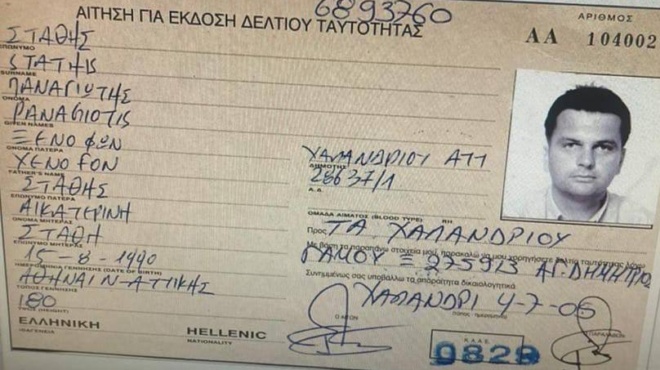 6893760
ΑΙΤΗΣΗ ΓΙΑ ΕΚΔΟΣΗ ΔΕΛΤΙΟΥ ΤΑΥΤΟΤΗΤΑΣ
ΑΡΙΘΜΟΣ
ΑΑ 104002
ΣΤΑΘΗΣ
ΕΠΩΝΥΜΟ
STATHIS
SURNAME
ΠΑΝΑΓΙΩΤΗΣ
ΟΝΟΜΑ
PANAGIOTIS
GIVEN NAMES
ΞΕΝΟΦΩΝ
ΟΝΟΜΑ ΠΑΤΕΡΑ
XENOFON
FATHER'S NAME
ΣΤΑΘΗΣ
ΕΠΩΝΥΜΟ ΠΑΤΕΡΑ
ΑΙΚΑΤΕΡΙΝΗ
ΟΝΟΜΑ ΜΗΤΕΡΑΣ
ΣΤΑΘΗ
ΕΠΩΝΥΜΟ ΜΗΤΕΡΑΣ
15-8-1990
ΗΜΕΡΟΜΗΝΙΑ ΓΕΝΝΗΣΗΣ (DATE OF BIRTH)
ΑΘΗΝΑΙ Ν-ΑΤΤΙΚΗΣ
ΤΟΠΟΣ ΓΕΝΝΗΣΗΣ
180
ΕΛΛΗΝΙΚΗ
ΙΘΑΓΕΝΕΙΑ
HELLENIC
NATIONALITY
ΧΑΛΑΝΔΡΙΟΥ ΑΤΤ
ΔΗΜΟΤΗΣ
28637/1
Α.Α.
ΟΜΑΔΑ ΑΙΜΑΤΟΣ (BLOOD TYPE) RH
Προς ΤΑ ΧΑΛΑΝΔΡΙΟΥ
Με βάση τα παραπάνω στοιχεία μου, παρακαλώ να μου χορηγήσετε δελτίο ταυτότητας λόγω
ΓΑΜΟΥ Ξ 275913 ΑΓ. ΔΗΜΗΤΡΙΟΣ
Συνημμένως σας υποβάλλω τα απαραίτητα δικαιολογητικά
ΧΑΛΑΝΔΡΙ 4-7-06
Ο ΑΙΤΩΝ
0829